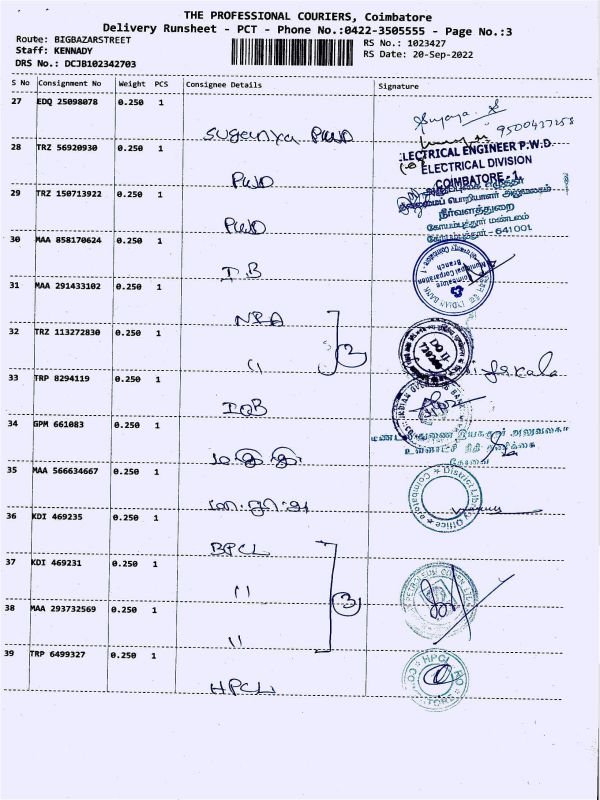 THE PROFESSIONAL COURIERS, Coimbatore
Delivery Runsheet - PCT - Phone No.:0422-3505555 - Page No.:3
Route: BIGBAZARSTREET
Staff: KENNADY
DRS No.: DCJB102342703
RS No.: 1023427
RS Date: 20-Sep-2022
S No Consignment No Weight PCS Consignee Details Signature
27 EDQ 25098078 0.250 1
Suganya PWD
9500437258
28 TRZ 56920930 0.250 1
PWD
ELECTRICAL ENGINEER P.W.D.
ELECTRICAL DIVISION
COIMBATORE - 1
29 TRZ 150713922 0.250 1
PWD
நீர்வளத்துறை
கோயம்புத்தூர் மண்டலம்
கோயம்புத்தூர் - 641001
30 MAA 858170624 0.250 1
I.B
Coimbatore
Municipal Corporation
Branch
INDIAN BANK
31 MAA 291433102 0.250 1
32 TRZ 113272830 0.250 1
"
2
DO II
33 TRP 8294119 0.250 1
IOB
34 GPM 661083 0.250 1
35 MAA 566634667 0.250 1
District Library Office
Coimbatore
36 KDI 469235 0.250 1
BPCL
37 KDI 469231 0.250 1
"
3
38 MAA 293732569 0.250 1
"
39 TRP 6499327 0.250 1
HPCL
HPCL RO